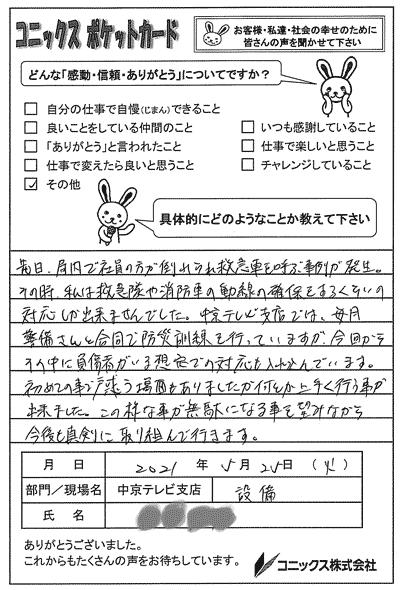 コニックス ポケットカード
お客様・私達・社会の幸せのために
皆さんの声を聞かせて下さい
どんな「感動・信頼・ありがとう」についてですか？
自分の仕事で自慢(じまん)できること
良いことをしている仲間のこと
いつも感謝していること
「ありがとう」と言われたこと
仕事で楽しいと思うこと
仕事で変えたら良いと思うこと
チャレンジしていること
✓ その他
具体的にどのようなことか教えて下さい
先日、局内で社員の方が倒れられ救急車を呼ぶ事例が発生。
その時、私は救急隊や消防車の動線の確保をするくらいの
対応しか出来ませんでした。中京テレビ支店では、毎月
警備さんと合同で防災訓練を行っていますが、今回から
その中に負傷者がいる想定での対応も入れ込んでいます。
初めての事で戸惑う場面もありましたが何とか上手く行う事が
出来ました。この様な事が無駄になる事を望みながら
今後も真剣に取り組んで行きます。
月 日 2021 年 5月25日 (火)
部門/現場名 中京テレビ支店 設備
氏 名
ありがとうございました。
これからもたくさんの声をお待ちしています。
コニックス株式会社